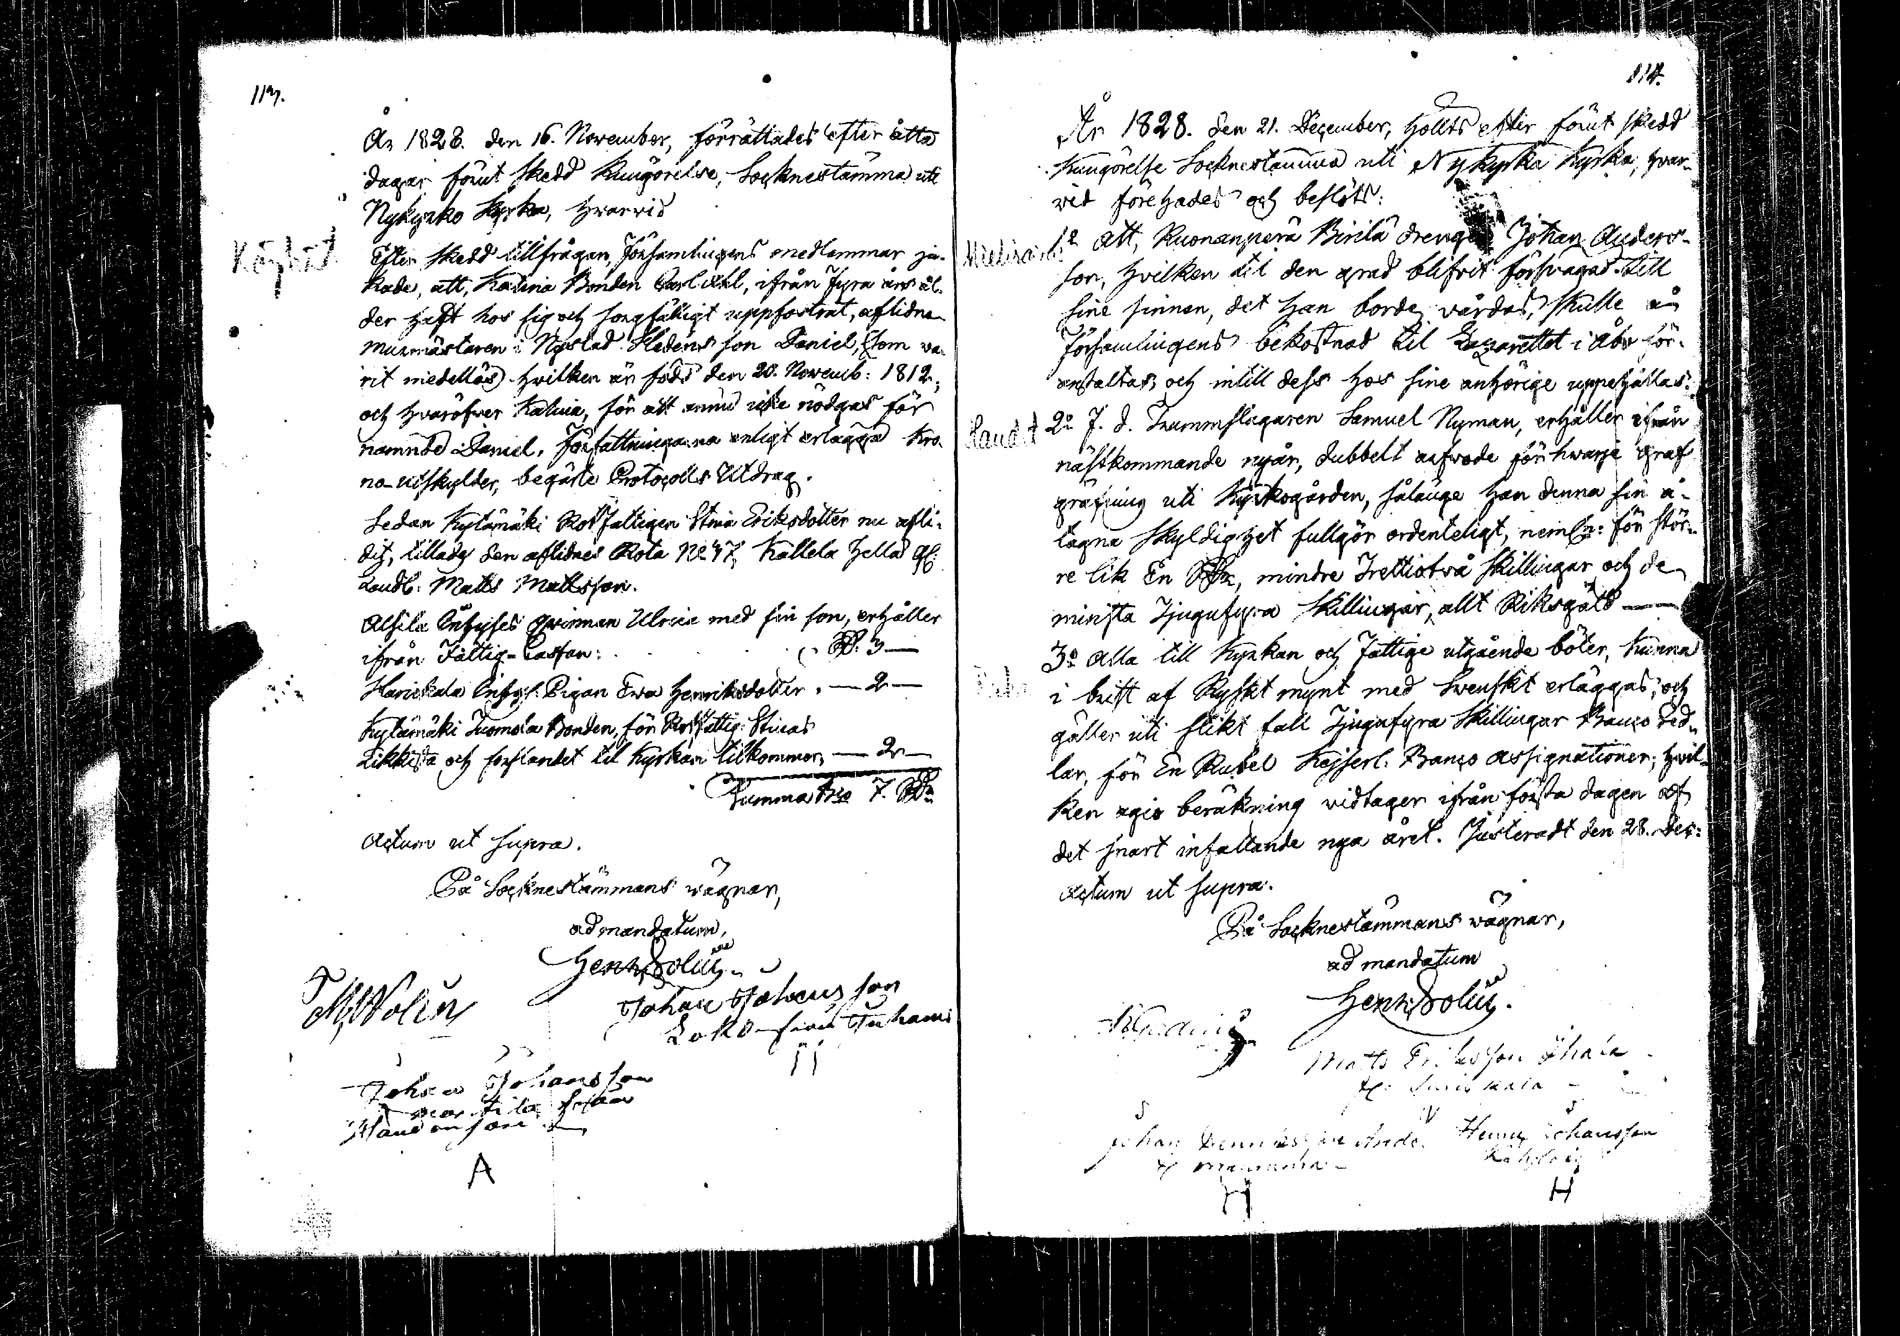 113.
År 1828. den 16. November, förrättades efter åtta
dagar förut skedd Kungörelse, Socknestämma uti
Nykyrko Kyrka, hvarvid
Efter skedd tillfrågan, Församlingens medlemmar ja-
kade, att, Kaluia Bonden Carl , ifrån Fyra års ål-
der haft hos sig och sorgfälligt uppfostrat, aflidne
murmästaren i Nystad Hedéns son Daniel, (som va-
rit medellös) hvilken är född den 20. Novemb: 1812,
och hvaröfver Kaluia, för att ännu icke nödgas för
nämnde Daniel, författningarna enligt erlägga Kro-
no-utskylder, begärte Protocolls Utdrag.
Sedan Kytämäki Rotfattigen Stina Eriksdotter nu afli-
dit, tillades den aflidnes Rota No 47, Kallela Hella
Landb: Matts Mattsson.
Alhila Inhyses qvinnan Ulrica med sin son, erhåller
ifrån Fattig-Cassan: . . . 3 —
Inhys: Pigan Ewa Henriksdotter. — 2 —
Kytämäki Tuomola Bonden, för Rotfattig: Stinas
Likkista och forslandet til Kyrkan tilkommer, — 2 —
Summa Bco 7.
Actum ut supra.
På Socknestämmans vägnar,
ad mandatum,
Henr:
Johan Johansson
Juhani
Johan Johansson
A
114.
År 1828. den 21. December, hölts efter förut skedd
Kungörelse Socknestämma uti Nykyrka Kyrka; hvar-
vid förehades och beslöts:
1o Att, Kuonanperä Pirilä drengen Johan Anders-
son, hvilken til den grad blifvit försvagad till
sine sinnen, det han borde vårdas, skulle på
Församlingens bekostnad til Lazarettet i Åbo för-
anstaltas, och intill dess hos sine anhörige uppehållas.
2o F. d. Trummslagaren Samuel Nyman, erhåller ifrån
nästkommande nyår, dubbelt arfvode för hwarje graf
gräfning uti Kyrkogården, sålänge han denna sin å-
tagna skyldighet fullgör ordenteligt, neml: för stör-
re lik En , mindre Trettiotvå skillingar och de
minsta Tjugufyra skillingar, allt Riksgäld —
3o Alla till Kyrkan och Fattige utgående böter, kunna
i brist af Ryskt mynt med Swenskt erläggas; och
gäller uti slikt fall Tjugufyra skillingar Banco Sed-
lar, för En Rubel Kejserl: Banco Assignationer; hvil-
ken agio beräkning vidtager ifrån första dagen af
det snart infallande nya året. Justeradt den 28. Dec:
Actum ut supra.
På Socknestämmans vägnar,
ad mandatum
Henr:
Matts Eriksson
Johan
Johansson
H
H